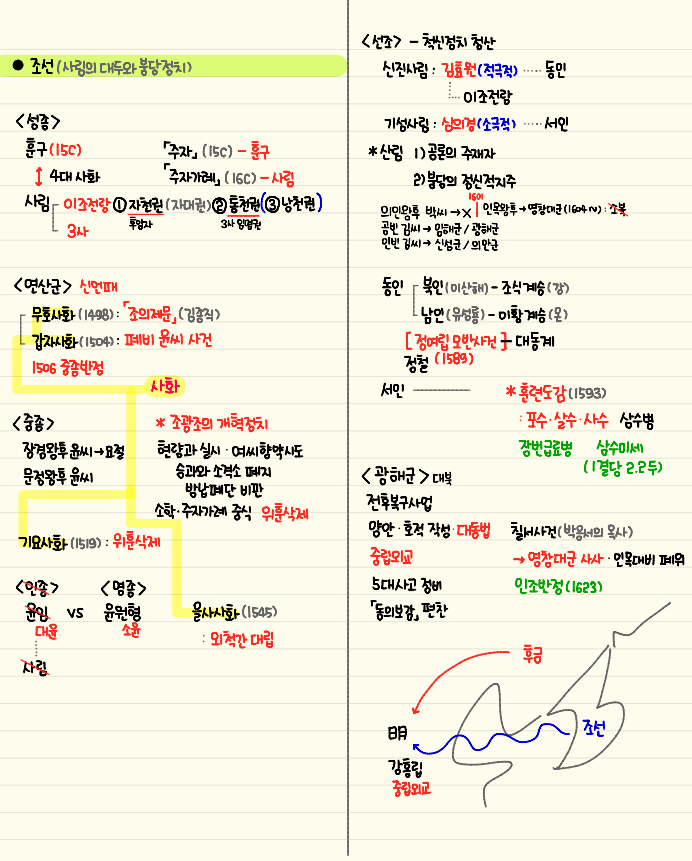 ● 조선 (사림의 대두와 붕당정치)
<성종>
훈구(15C)
「주자」(15C) - 훈구
↕ 4대 사화
「주자가례」(16C) - 사림
사림
이조전랑 ① 자천권(자대권) ② 통청권 (③ 낭천권)
후임자
3사 임명권
3사
<연산군> 신언패
무오사화(1498): 「조의제문」(김종직)
갑자사화(1504): 폐비 윤씨 사건
1506 중종반정
사화
<중종>
장경왕후 윤씨→요절
문정왕후 윤씨
* 조광조의 개혁정치
현량과 실시·여씨향약시도
승과와 소격소 폐지
방납폐단 비판
소학·주자가례 중시 위훈삭제
기묘사화(1519): 위훈삭제
<인종> <명종>
윤임 vs 윤원형
대윤 소윤
사림
을사사화(1545)
: 외척간 대립
<선조> - 척신정치 청산
신진사림: 김효원(적극적) ····· 동인
이조전랑
기성사림: 심의겸(소극적) ····· 서인
* 산림 1) 공론의 주재자
2) 붕당의 정신적지주
1601
의인왕후 박씨→X 인목왕후→영창대군(1604~): 소북
공빈 김씨→임해군/광해군
인빈 김씨→신성군/의안군
동인
북인(이산해)-조식계승(강)
남인(유성룡)-이황계승(온)
[정여립 모반사건] 대동계
정철 (1589)
서인
* 훈련도감(1593)
: 포수·살수·사수 삼수병
장번급료병 삼수미세
(1결당 2.2두)
<광해군> 대북
전후복구사업
양안·호적 작성·대동법
중립외교
5대사고 정비
「동의보감」 편찬
칠서사건(박응서의 옥사)
→ 영창대군 사사·인목대비 폐위
인조반정(1623)
후금
明
조선
강홍립
중립외교